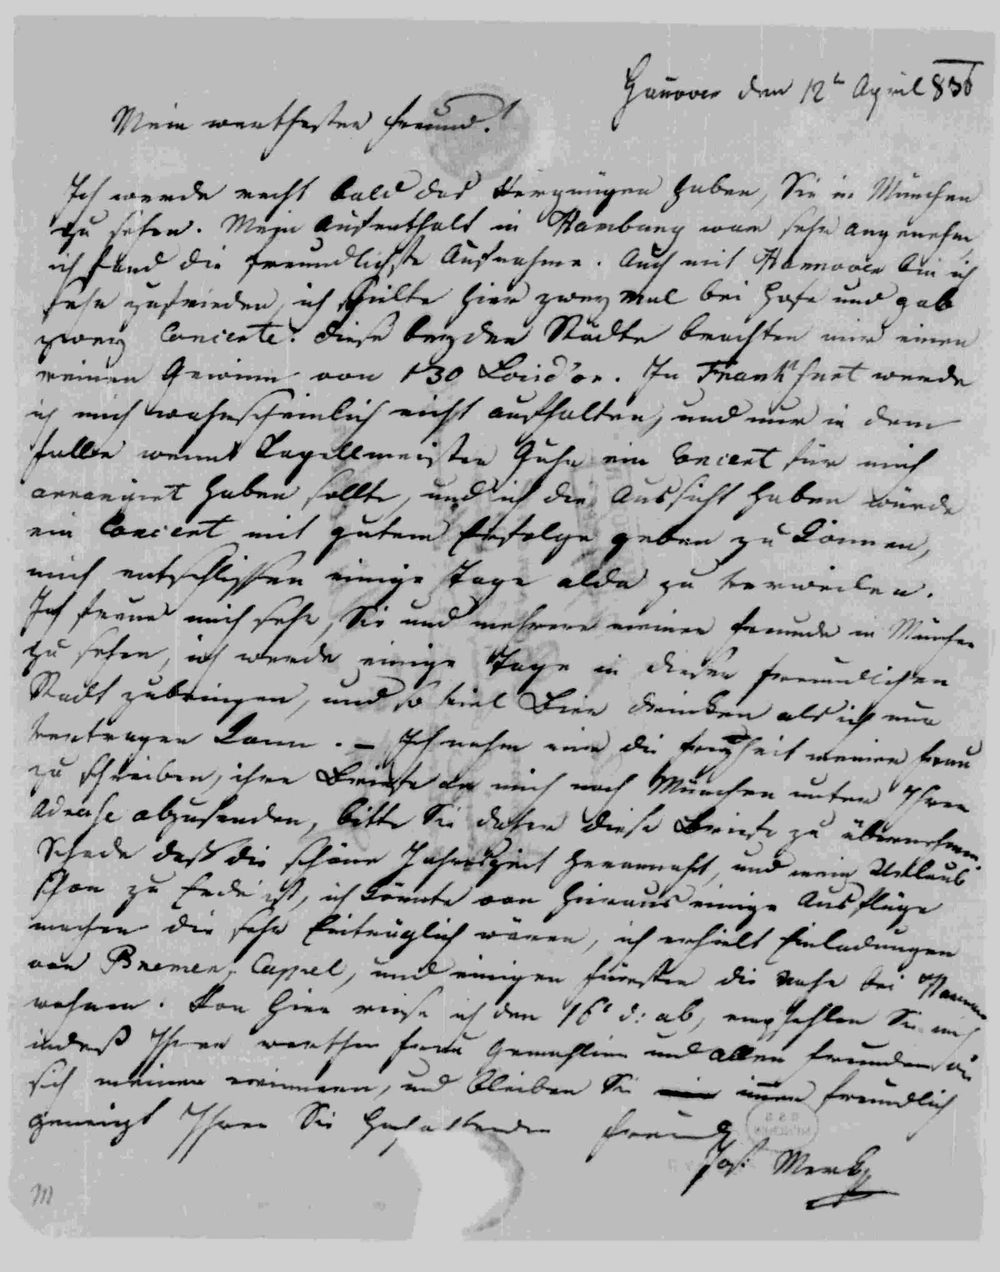 Hanover den 12t April 836
Mein werthester Freund!
Ich werde recht bald das Vergnügen haben, Sie in München
zu sehen. Mein Aufenthalt in Hamburg war sehr angenehm
ich fand die freundlichste Aufnahme. Auch mit Hannover bin ich
sehr zufrieden, ich spielte hier zwey mal bei Hofe und gab
zwey Concerte. diese beyden Städte brachten mir einen
reinen Gewinn von 130 Louid'or. In Frankfurt werde
ich mich wahrscheinlich nicht aufhalten, und nur in dem
falle wenn Kapellmeister Guhr ein Concert für mich
arrangirt haben sollte, und ich die Aussicht haben würde
ein Concert mit gutem Erfolge geben zu können,
mich entschlissen einige Tage alda zu verweilen.
Ich freue mich sehr, Sie und mehrere meiner Freunde in München
zu sehen, ich werde einige Tage in dieser freundlichen
Stadt zubringen, und so viel Bier drinken als ich nur
vertragen kann. – Ich nahm mir die Freyheit meiner Frau
zu schreiben, ihre Briefe an mich nach München unter Ihrer
Adresse abzusenden, bitte Sie daher diese Briefe zu übernehmen.
Schade daß die schöne Jahreszeit herannaht, und mein Urlaub
schon zu Ende ist, ich könnte von hieraus einige Ausflüge
machen die sehr einträglich wären, ich erhielt Einladungen
von Bremen, Cassel, und einigen Fürsten die nahe bei Hannover
wohnen. Von hier reise ich den 16t d: ab, empfehlen Sie mich
indeß Ihrer werthen Frau Gemahlinn und allen Freunden die
sich meiner erinnern, und bleiben Sie immer freundlich
geneigt Ihren Sie hochachtenden Freund
Jos: Merk
M